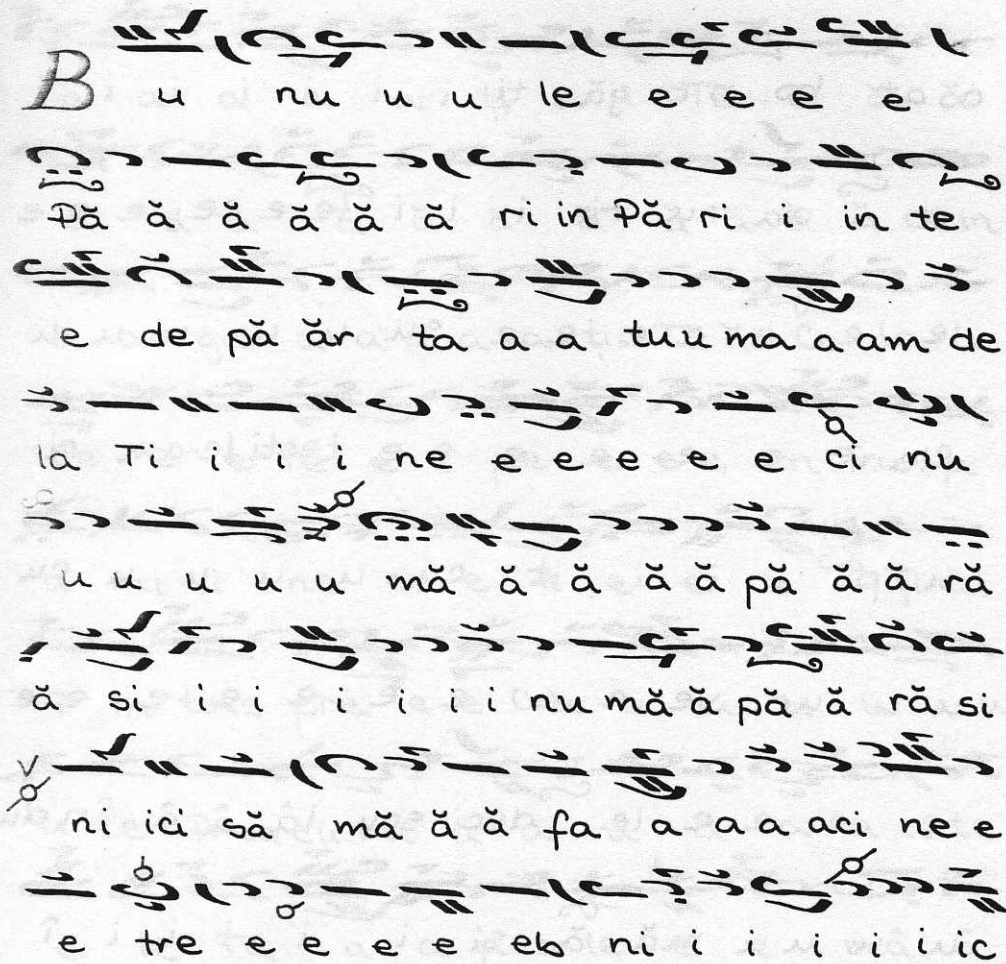 Bu nu u u le e e e e
Pă ă ă ă ă ă ri in Pă ri i in te
le de pă ăr ta a a tu u ma a am de
la Ti i i i ne e e e e e ci nu
u u u u u mă ă ă ă ă pă ă ă ră
ă si i i i i i i nu mă ă pă ă ră si
ni ici să mă ă ă fa a a a aci ne e
e tre e e e e eb ni i i i i i ic